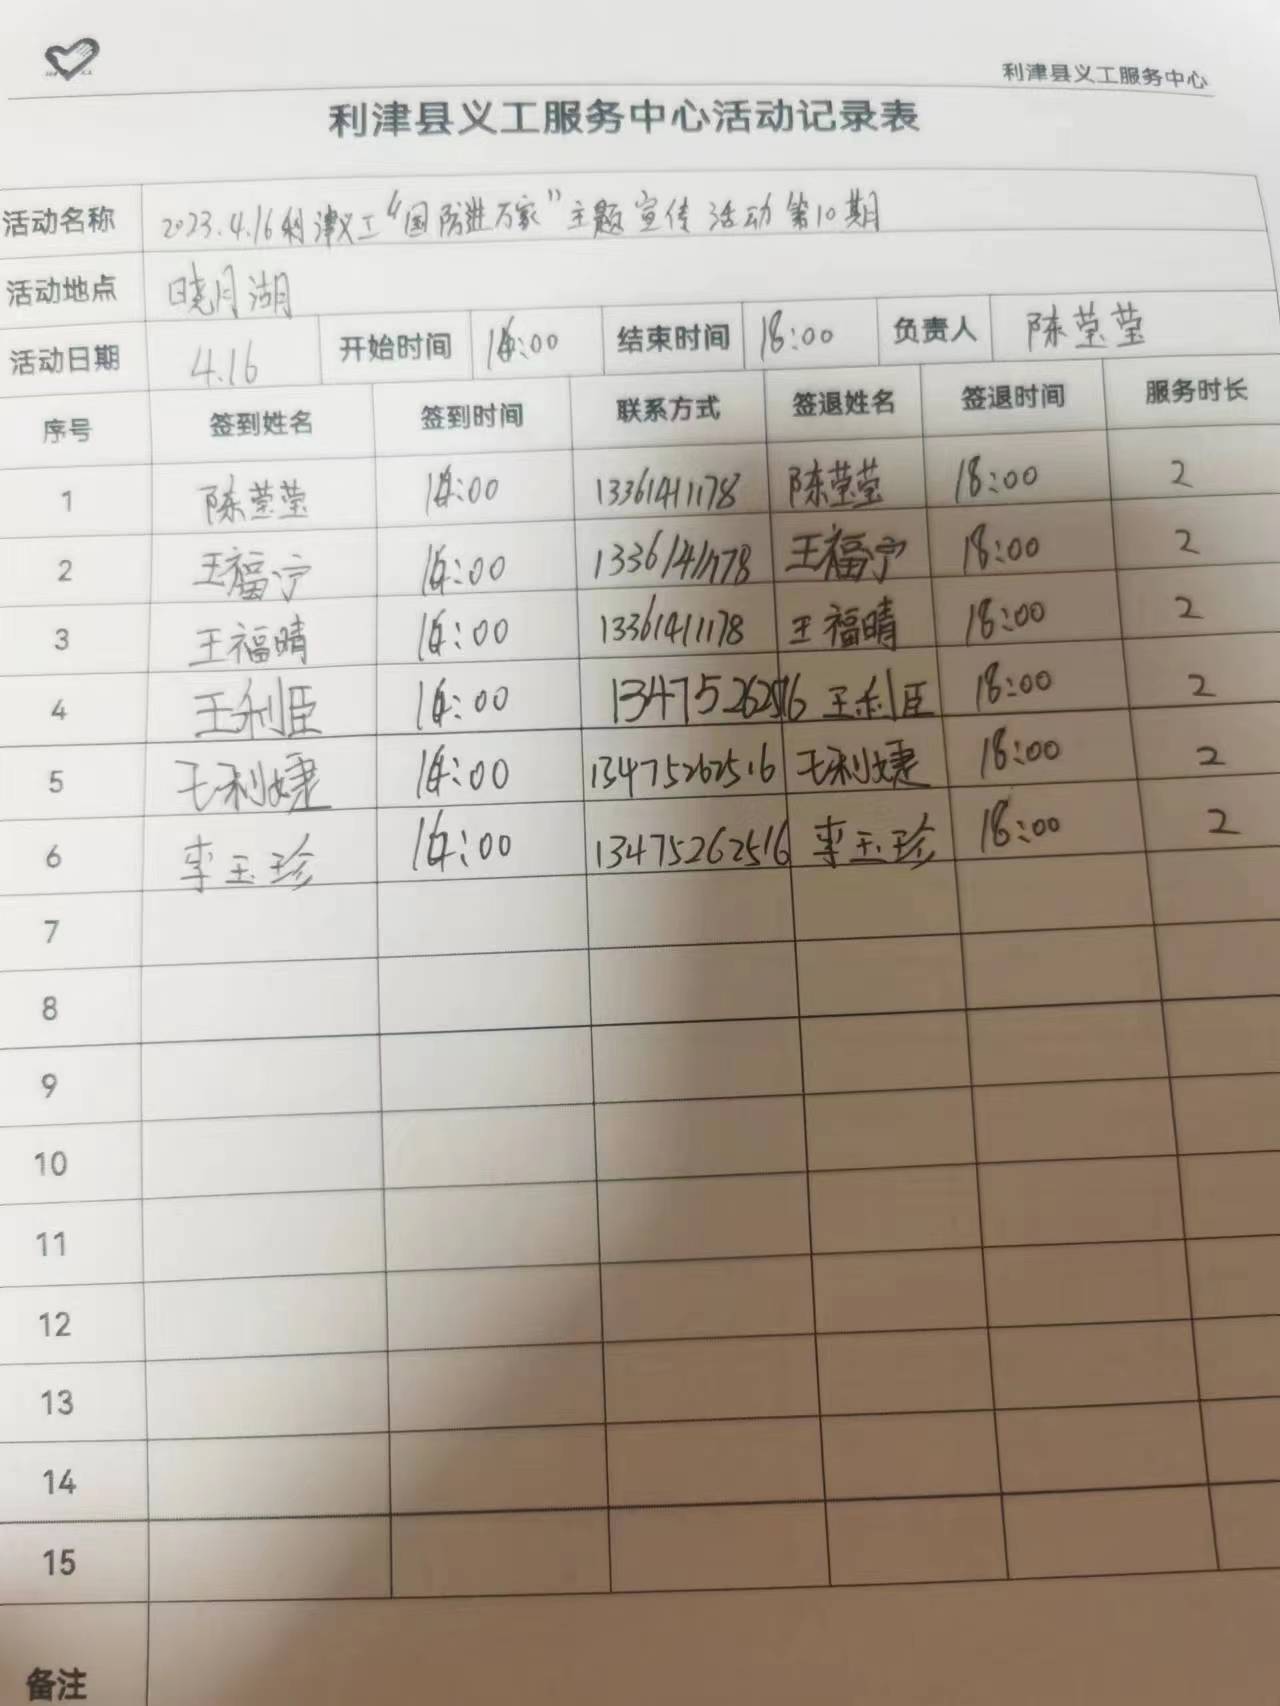 利津县义工服务中心
利津县义工服务中心活动记录表
活动名称 2023.4.16利津义工“国防进万家”主题宣传活动第10期
活动地点 晓月湖
活动日期 4.16 开始时间 16:00 结束时间 18:00 负责人 陈莹莹
序号 签到姓名 签到时间 联系方式 签退姓名 签退时间 服务时长
1 陈莹莹 16:00 13361411178 陈莹莹 18:00 2
2 王福宁 16:00 13361411178 王福宁 18:00 2
3 王福晴 16:00 13361411178 王福晴 18:00 2
4 王利臣 16:00 13475262516 王利臣 18:00 2
5 王利婕 16:00 13475262516 王利婕 18:00 2
6 李玉珍 16:00 13475262516 李玉珍 18:00 2
7
8
9
10
11
12
13
14
15
备注